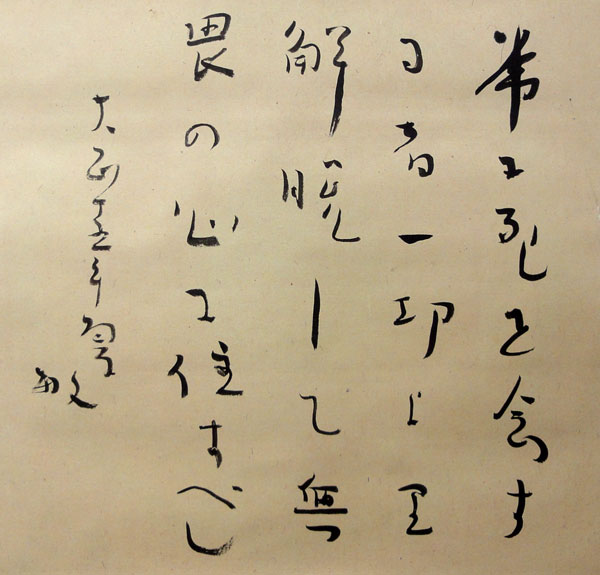 常に死を念す
る者一切より
解脱して無
畏の心に住すべし
大正五年
敏